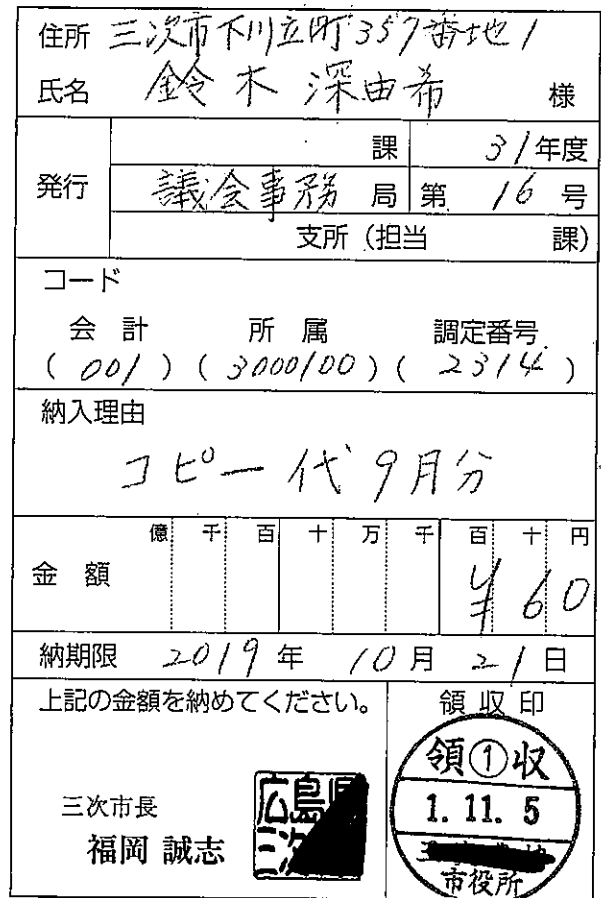 住所 三次市下川立町357番地1
氏名 鈴木 深由希 様
発行
課 31年度
議会事務局 第 16 号
支所(担当 課)
コード
会計 所属 調定番号
(001)(3000100)(2314)
納入理由
コピー代 9月分
億 千 百 十 万 千 百 十 円
金額 ¥60
納期限 2019年 10月 21日
上記の金額を納めてください。
三次市長
福岡 誠志
広島県
三次
領収印
領①収
1.11.5
市役所